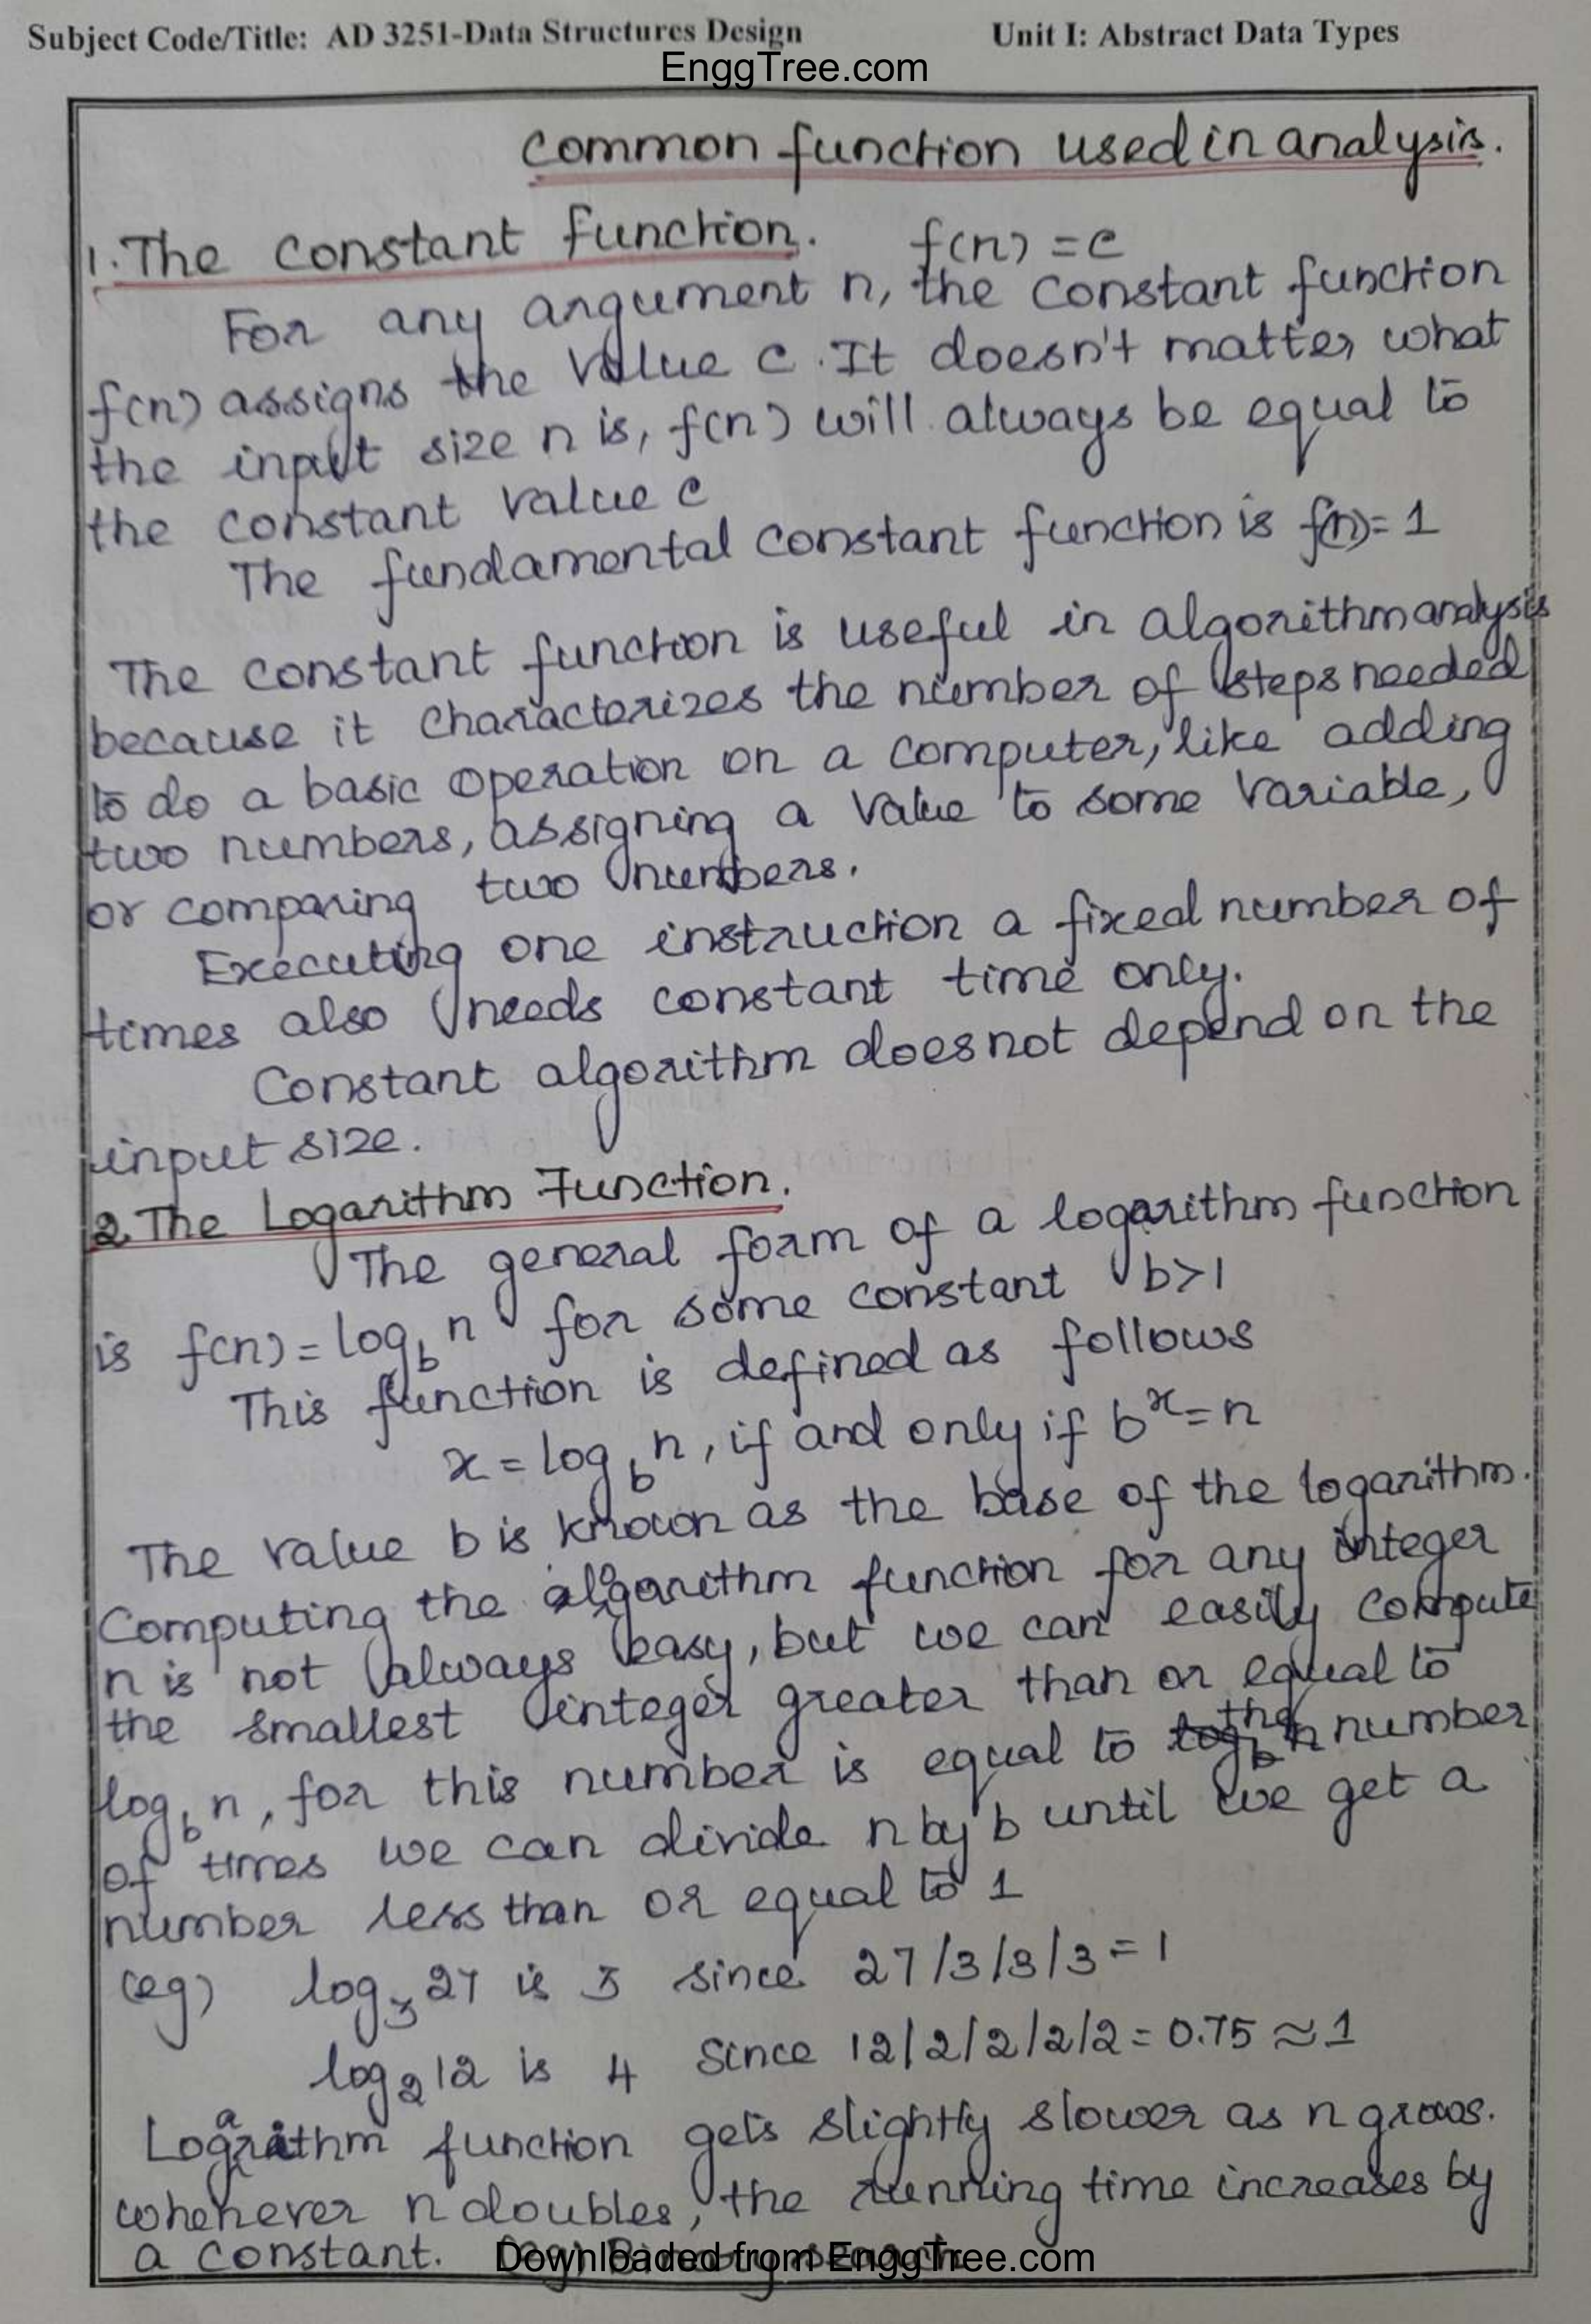 Subject Code/Title: AD 3251-Data Structures Design Unit I: Abstract Data Types
EnggTree.com
common function used in analysis.
1. The constant function. f(n) = c
For any argument n, the constant function
f(n) assigns the value c. It doesn't matter what
the input size n is, f(n) will always be equal to
the constant value c
The fundamental constant function is f(n)= 1
The constant function is useful in algorithm analysis
because it characterizes the number of steps needed
to do a basic operation on a computer, like adding
two numbers, assigning a value to some variable,
or comparing two numbers.
Executing one instruction a fixed number of
times also needs constant time only.
Constant algorithm does not depend on the
input size.
2. The Logarithm Function.
The general form of a logarithm function
is f(n) = log_b n for some constant b>1
This function is defined as follows
x = log_b n, if and only if b^x = n
The value b is known as the base of the logarithm.
Computing the algorithm function for any integer
n is not always easy, but we can easily compute
the smallest integer greater than or equal to
log_b n, for this number is equal to the number
of times we can divide n by b until we get a
number less than or equal to 1
(eg) log_3 27 is 3 since 27/3/3/3 = 1
log_2 12 is 4 Since 12/2/2/2/2 = 0.75 ≈ 1
Logarithm function gets slightly slower as n grows.
whenever n doubles, the running time increases by
a constant. (eg) Binary search
Downloaded from EnggTree.com